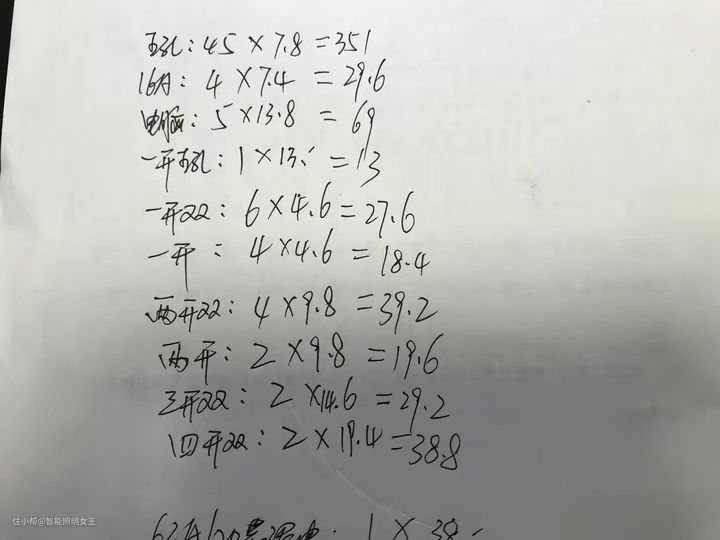 五孔：45×7.8=351
16A：4×7.4=29.6
电脑：5×13.8=69
一开五孔：1×13.=13
一开双：6×4.6=27.6
一开：4×4.6=18.4
两开双：4×9.8=39.2
两开：2×9.8=19.6
三开双：2×14.6=29.2
四开双：2×19.4=38.8
1×38
住小帮@智能照明女王